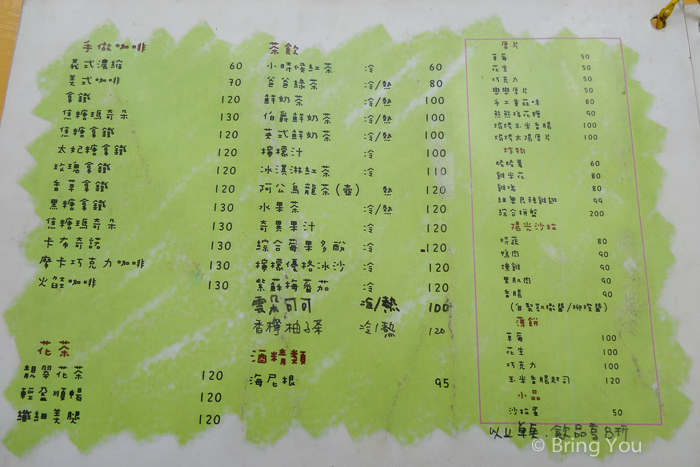 手做咖啡
義式濃縮 60
美式咖啡 70
拿鐵 120
焦糖瑪奇朵 130
焦糖拿鐵 120
太妃糖拿鐵 130
玫瑰拿鐵 120
香草拿鐵 130
黑糖拿鐵 130
焦糖瑪奇朵 130
卡布奇諾 130
摩卡巧克力咖啡 130
火焰咖啡 130
花茶
靚翠花茶 120
輕盈順暢 120
纖細美腿 120
茶飲
小時候紅茶 冷 60
爸爸綠茶 冷/熱 80
鮮奶茶 冷/熱 100
伯爵鮮奶茶 冷/熱 100
英式鮮奶茶 冷/熱 100
檸檬汁 冷 100
冰淇淋紅茶 冷 110
阿公烏龍茶(壺) 熱 120
水果茶 冷/熱 120
奇異果汁 冷 120
綜合莓果多酚 冷 120
檸檬優格冰沙 冷 120
紫蘇梅蕃茄 冷 120
雲朵可可 冷/熱 100
香檸柚子茶 冷/熱 120
酒精類
海尼根 95
厚片
草莓 50
花生 50
巧克力 50
戀戀厚片 50
手工童菇味 80
90
100
100
炸物
60
雞米花 80
80
99
綜合拼盤 200
陽光沙拉
80
鴨肉 90
燻雞 90
里肌肉 90
香腸 90
薄餅
草莓 100
花生 100
巧克力 100
玉米香腸起司 120
小品
50
以上單點.飲品享8折
© Bring You